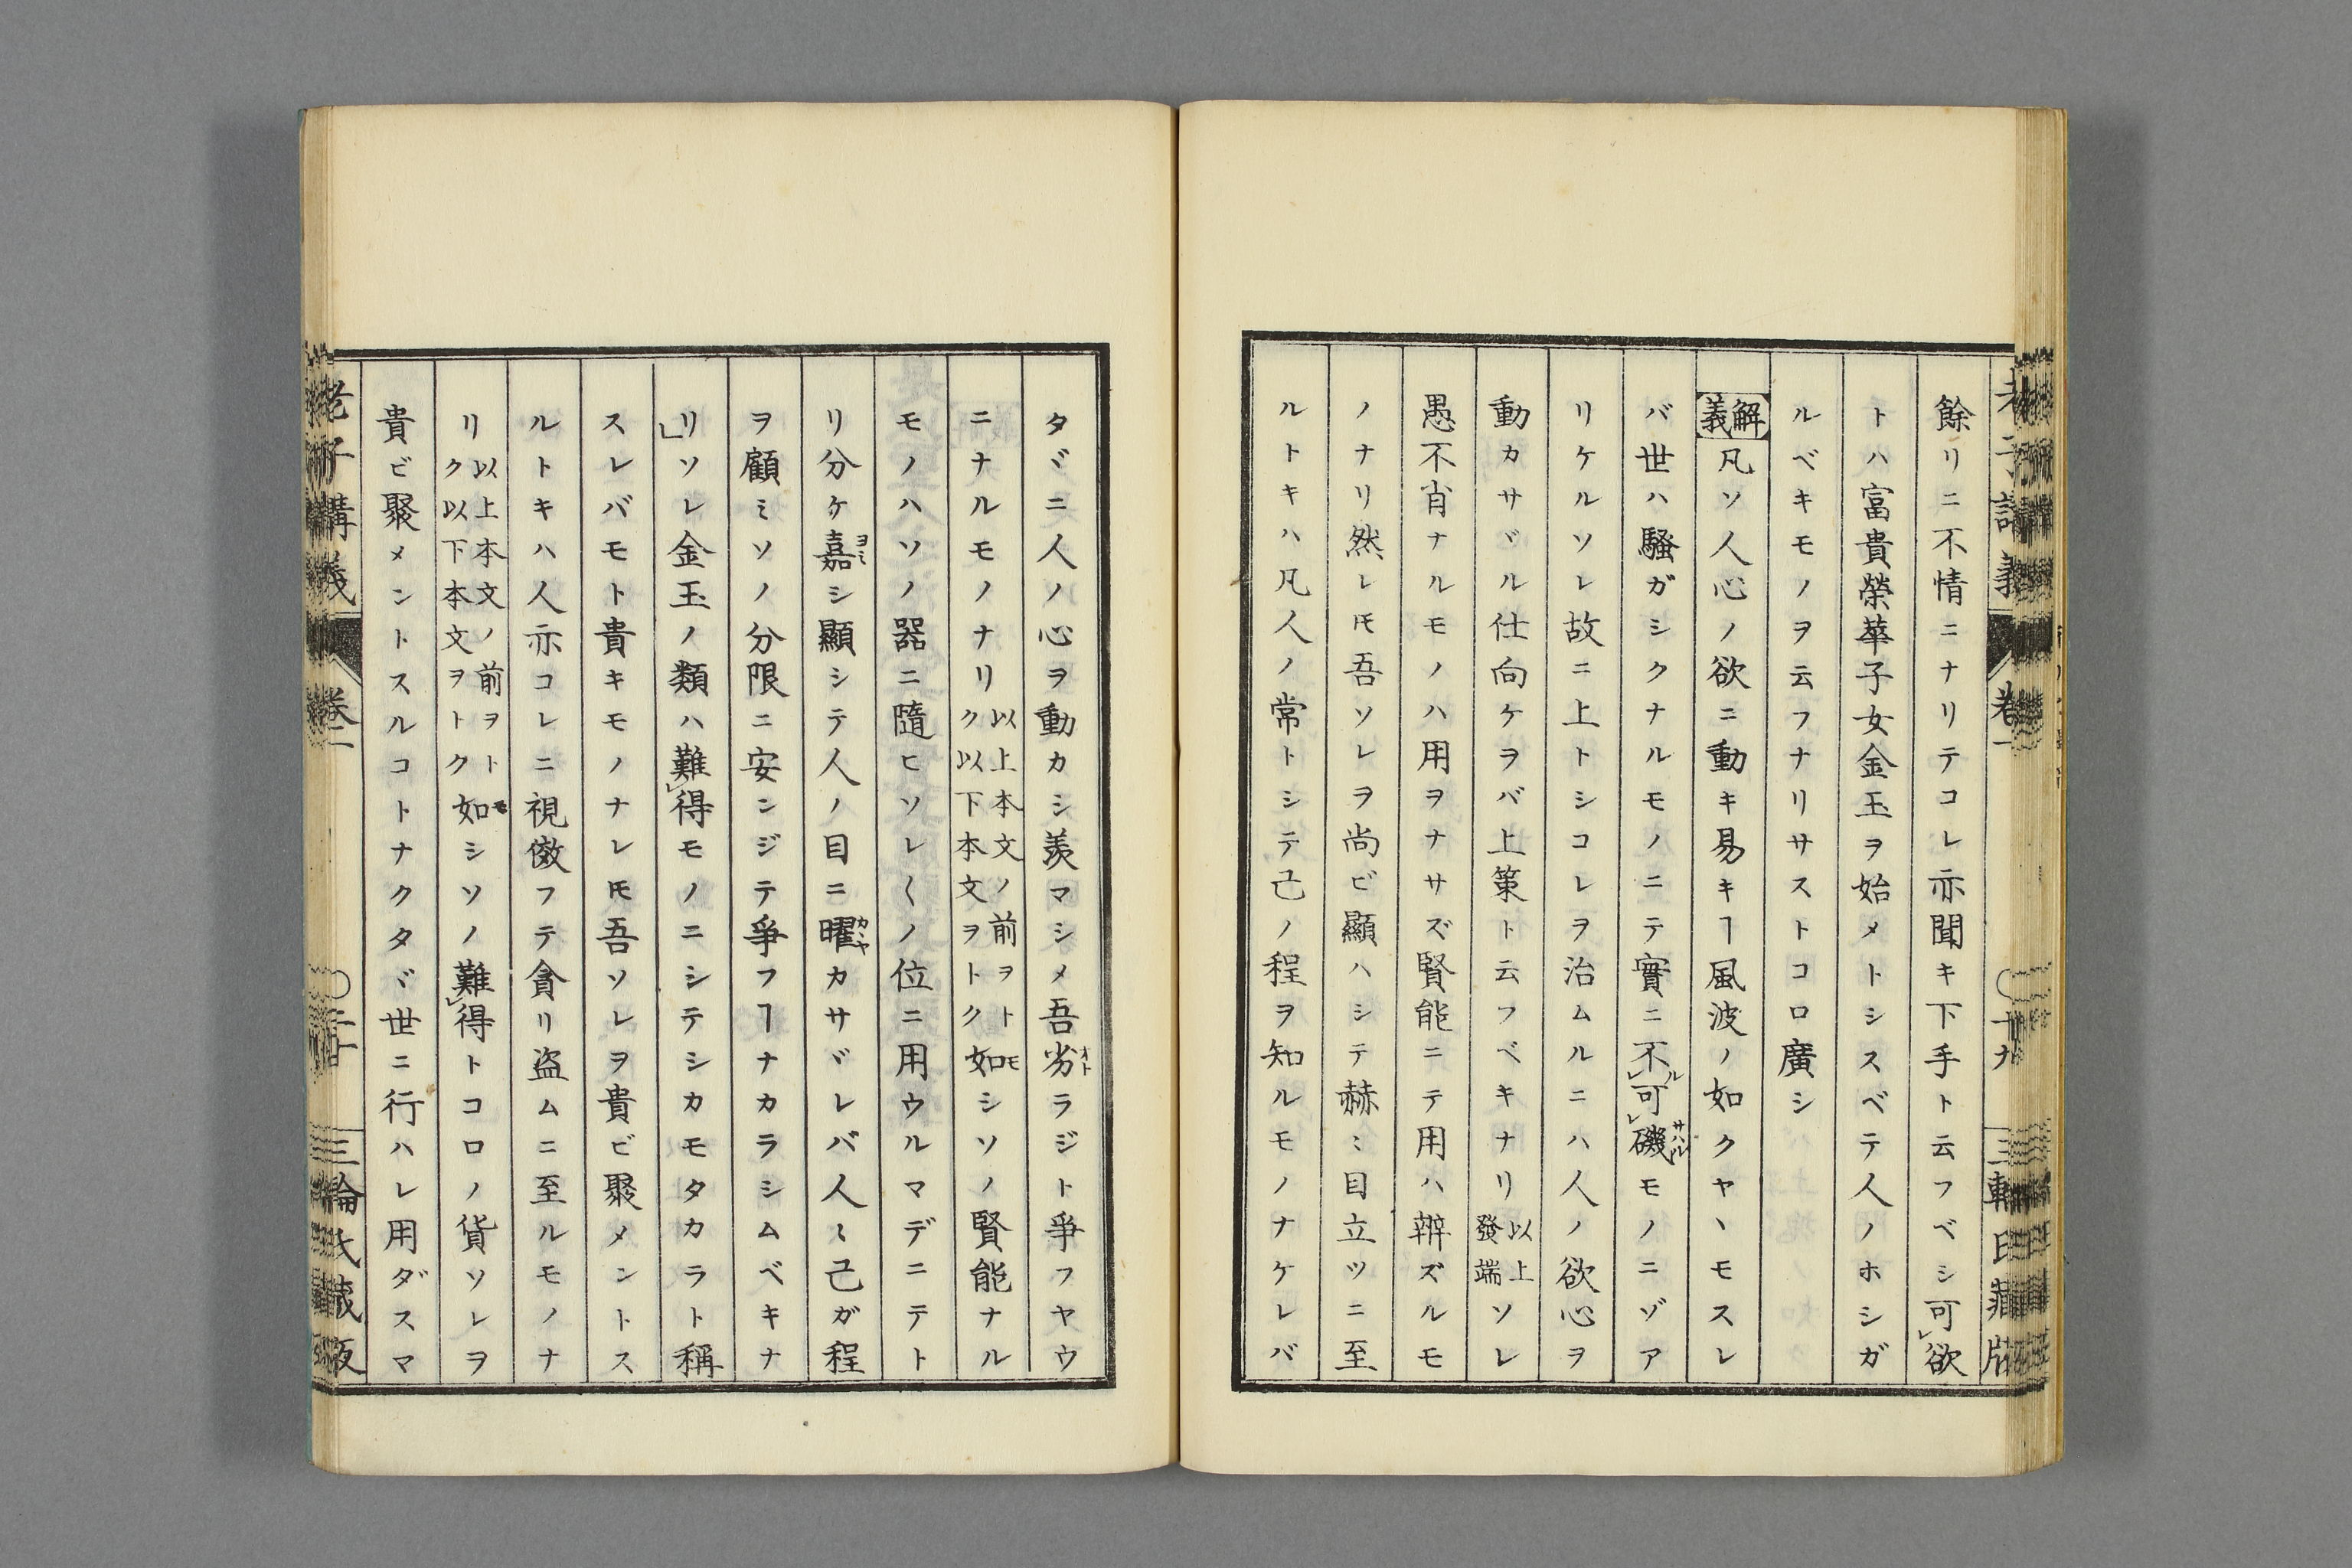 餘リニ不情ニナリテコレ亦聞キ下手ト云フベシ可㆑欲
トハ富貴榮華子女金玉ヲ始メトシスベテ人ノホシガ
ルベキモノヲ云フナリサストコロ廣シ
解義 凡ソ人心ノ欲ニ動キ易キヿ風波ノ如クヤヽモスレ
バ世ハ騷ガシクナルモノニテ實ニ不㆑可㆑磯サハルモノニゾア
リケルソレ故ニ上トシコレヲ治ムルニハ人ノ欲心ヲ
動カサヾル仕向ケヲバ上策ト云フベキナリ以上發端ソレ
愚不肖ナルモノハ用ヲナサズ賢能ニテ用ハ辨ズルモ
ノナリ然レ𪜈吾ソレヲ尚ビ顯ハシテ赫〻目立ツニ至
ルトキハ凡人ノ常トシテ己ノ程ヲ知ルモノナケレバ
タヾニ人ノ心ヲ動カシ羨マシメ吾劣オトラジト爭フヤウ
ニナルモノナリ以上本文ノ前ヲトク以下本文ヲトク如モシソノ賢能ナル
モノハソノ器ニ隨ヒソレ〱ノ位ニ用ウルマデニテト
リ分ケ嘉ヨミシ顯シテ人ノ目ニ曜カヾヤカサヾレバ人〻己ガ程
ヲ顧ミソノ分限ニ安ンジテ爭フヿナカラシムベキナ
リ」ソレ金玉ノ類ハ難㆑得モノニシテシカモタカラト稱
スレバモト貴キモノナレ𪜈吾ソレヲ貴ビ聚メントス
ルトキハ人亦コレニ視傚フテ貪リ盜ムニ至ルモノナ
リ以上本文ノ前ヲトク以下本文ヲトク如モシソノ難㆑得トコロノ貨ソレヲ
貴ビ聚メントスルコトナクタヾ世ニ行ハレ用ダスマ
老子講義 卷一 二十